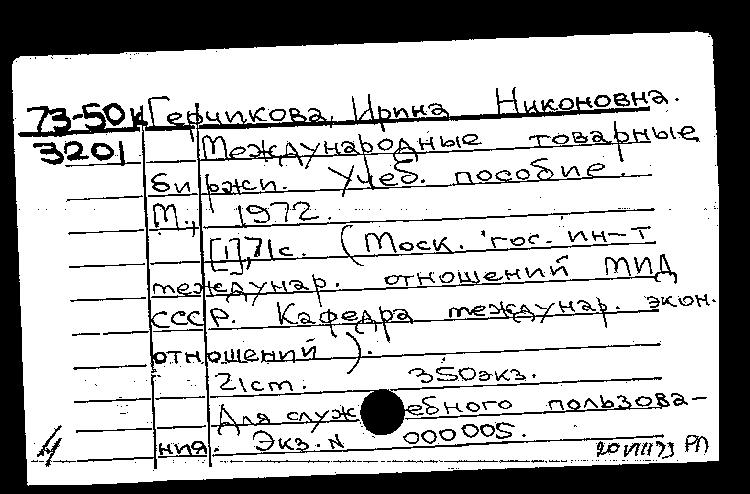 73-50к Герчикова, Ирина Никоновна.
3201 Международные товарные
биржи. Учеб. пособие.
М., 1972.
[1], 71с. (Моск. гос. ин-т
междунар. отношений МИД
СССР. Кафедра междунар. экон.
отношений).
21ст. 350экз.
Для служебного пользова-
ния. Экз. N 000005.
20 VIII 73 РП